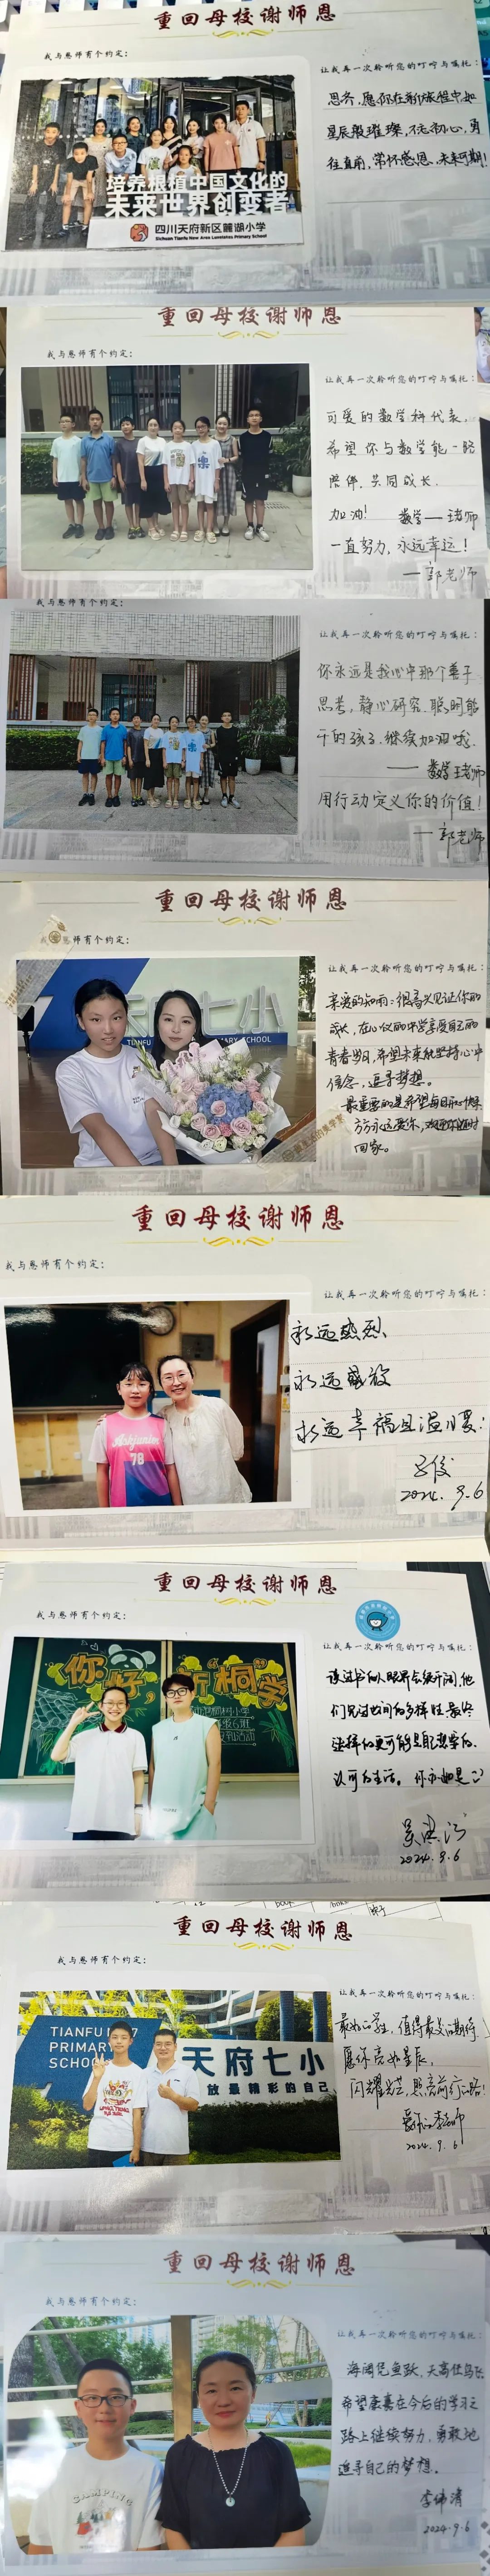 重回母校谢师恩
我与恩师有个约定：
让我再一次聆听您的叮咛与嘱托：
培养根植中国文化的
未来世界创变者
四川天府新区麓湖小学
Sichuan Tianfu New Area Luxelakes Primary School
思齐，愿你在新旅程中，如
星辰般璀璨，不忘初心，勇
往直前，常怀感恩，未来可期！
重回母校谢师恩
我与恩师有个约定：
让我再一次聆听您的叮咛与嘱托：
可爱的数学科代表，
希望你与数学能一路
陪伴，共同成长．
加油！ 数学——王老师
一直努力，永远幸运！
——郭老师
我与恩师有个约定：
让我再一次聆听您的叮咛与嘱托：
你永远是我心中那个善于
思考，静心研究、聪明能
干的孩子，继续加油哦．
——数学王老师
用行动定义你的价值！
——郭老师
重回母校谢师恩
我与恩师有个约定：
让我再一次聆听您的叮咛与嘱托：
天府七小
TIANFU PRIMARY SCHOOL
亲爱的知雨：很高兴见证你的
成长，在心仪的中学享受自己的
青春岁月，希望未来能坚持心中
信念，追寻梦想。
最重要的是希望每日
永远爱你，欢迎你随时
回家。
重回母校谢师恩
我与恩师有个约定：
让我再一次聆听您的叮咛与嘱托：
Askjunior
78
永远热烈、
永远盛放
永远幸福且温暖：
2024．9．6
重回母校谢师恩
我与恩师有个约定：
让我再一次聆听您的叮咛与嘱托：
你好，新“桐”学
读过书的人眼界会变开阔，他
们见过世间的多样性，最终
选择的更可能是自己想要的、
认可的生活。你亦如是
2024．9．6
重回母校谢师恩
我与恩师有个约定：
让我再一次聆听您的叮咛与嘱托：
TIANFU NO.7
PRIMARY
SCHOOL
天府七小
放最精彩的自己
最好的学生，值得最美的期待
愿你亮如星辰，
闪耀光芒，照亮前行的路！
爱你的李老师
2024．9．6
重回母校谢师恩
我与恩师有个约定：
让我再一次聆听您的叮咛与嘱托：
CAMPING
海阔凭鱼跃，天高任鸟飞
希望康嘉在今后的学习之
路上继续努力，勇敢地
追寻自己的梦想。
2024．9．6